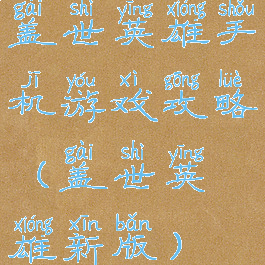 gài shì yīng xióng shǒu
盖世英雄手
jī yóu xì gōng lüè
机游戏攻略
gài shì yīng
(盖世英
xióng xīn bǎn
雄新版)